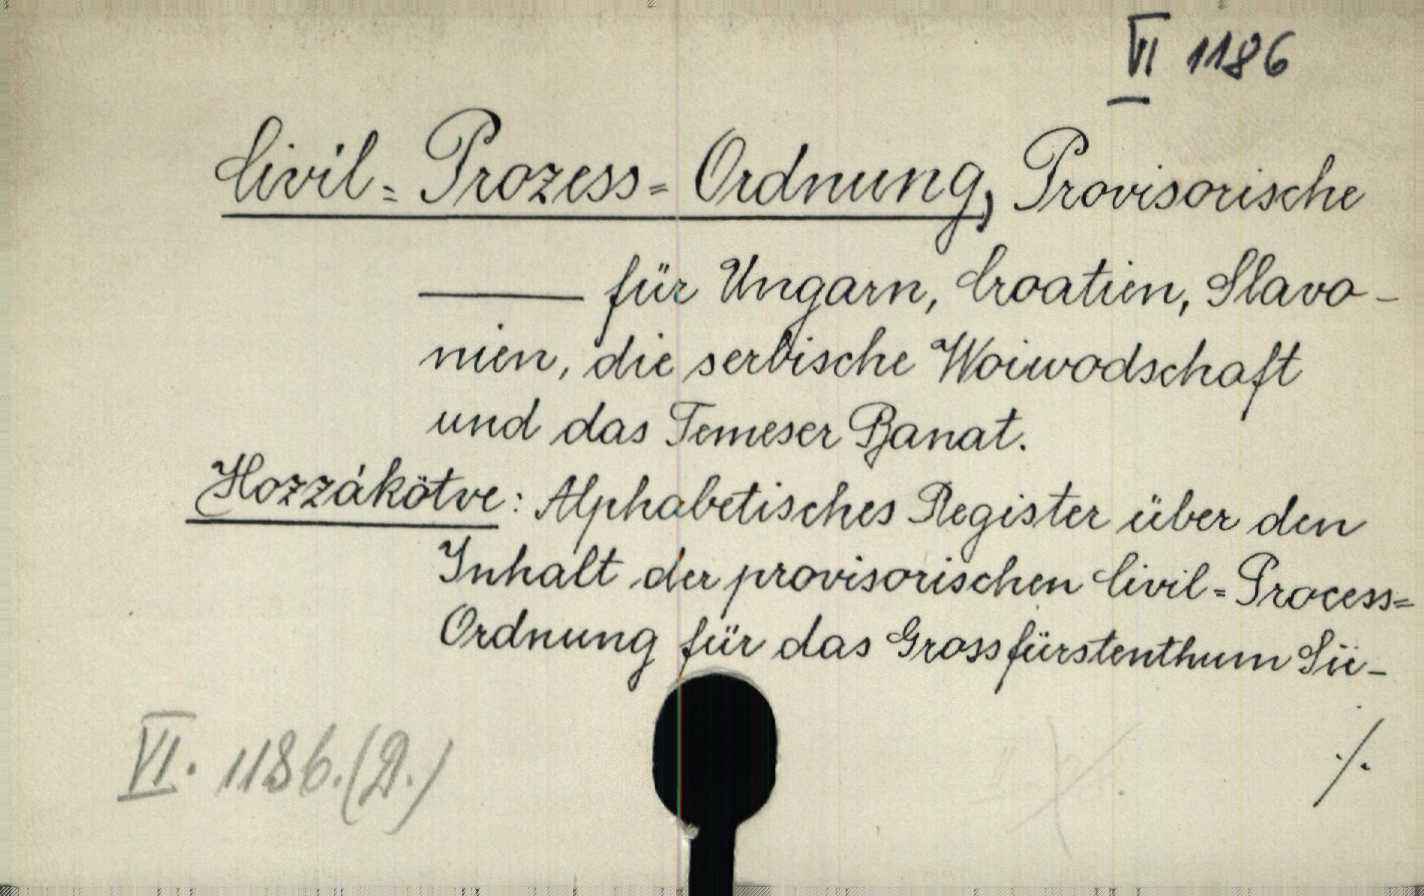 VI 1186
Civil=Prozess=Ordnung, Provisorische
—— für Ungarn, Croatien, Slavo-
nien, die serbische Woiwodschaft
und das Temeser Banat.
Hozzákötve: Alphabetisches Register über den
Inhalt der provisorischen Civil=Process=
Ordnung für das Grossfürstenthum Sü-
VI. 1186.(D.)
./.